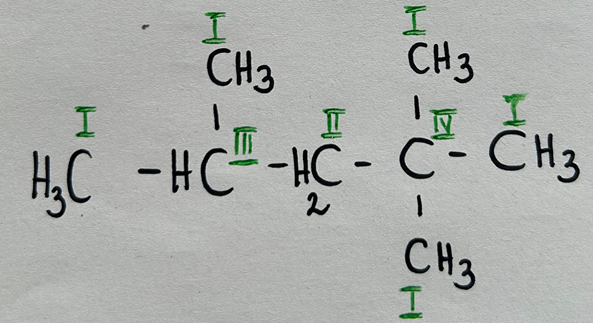 I I
CH3 CH3
I III II IV I
H3C - HC - H2C - C - CH3
CH3
I